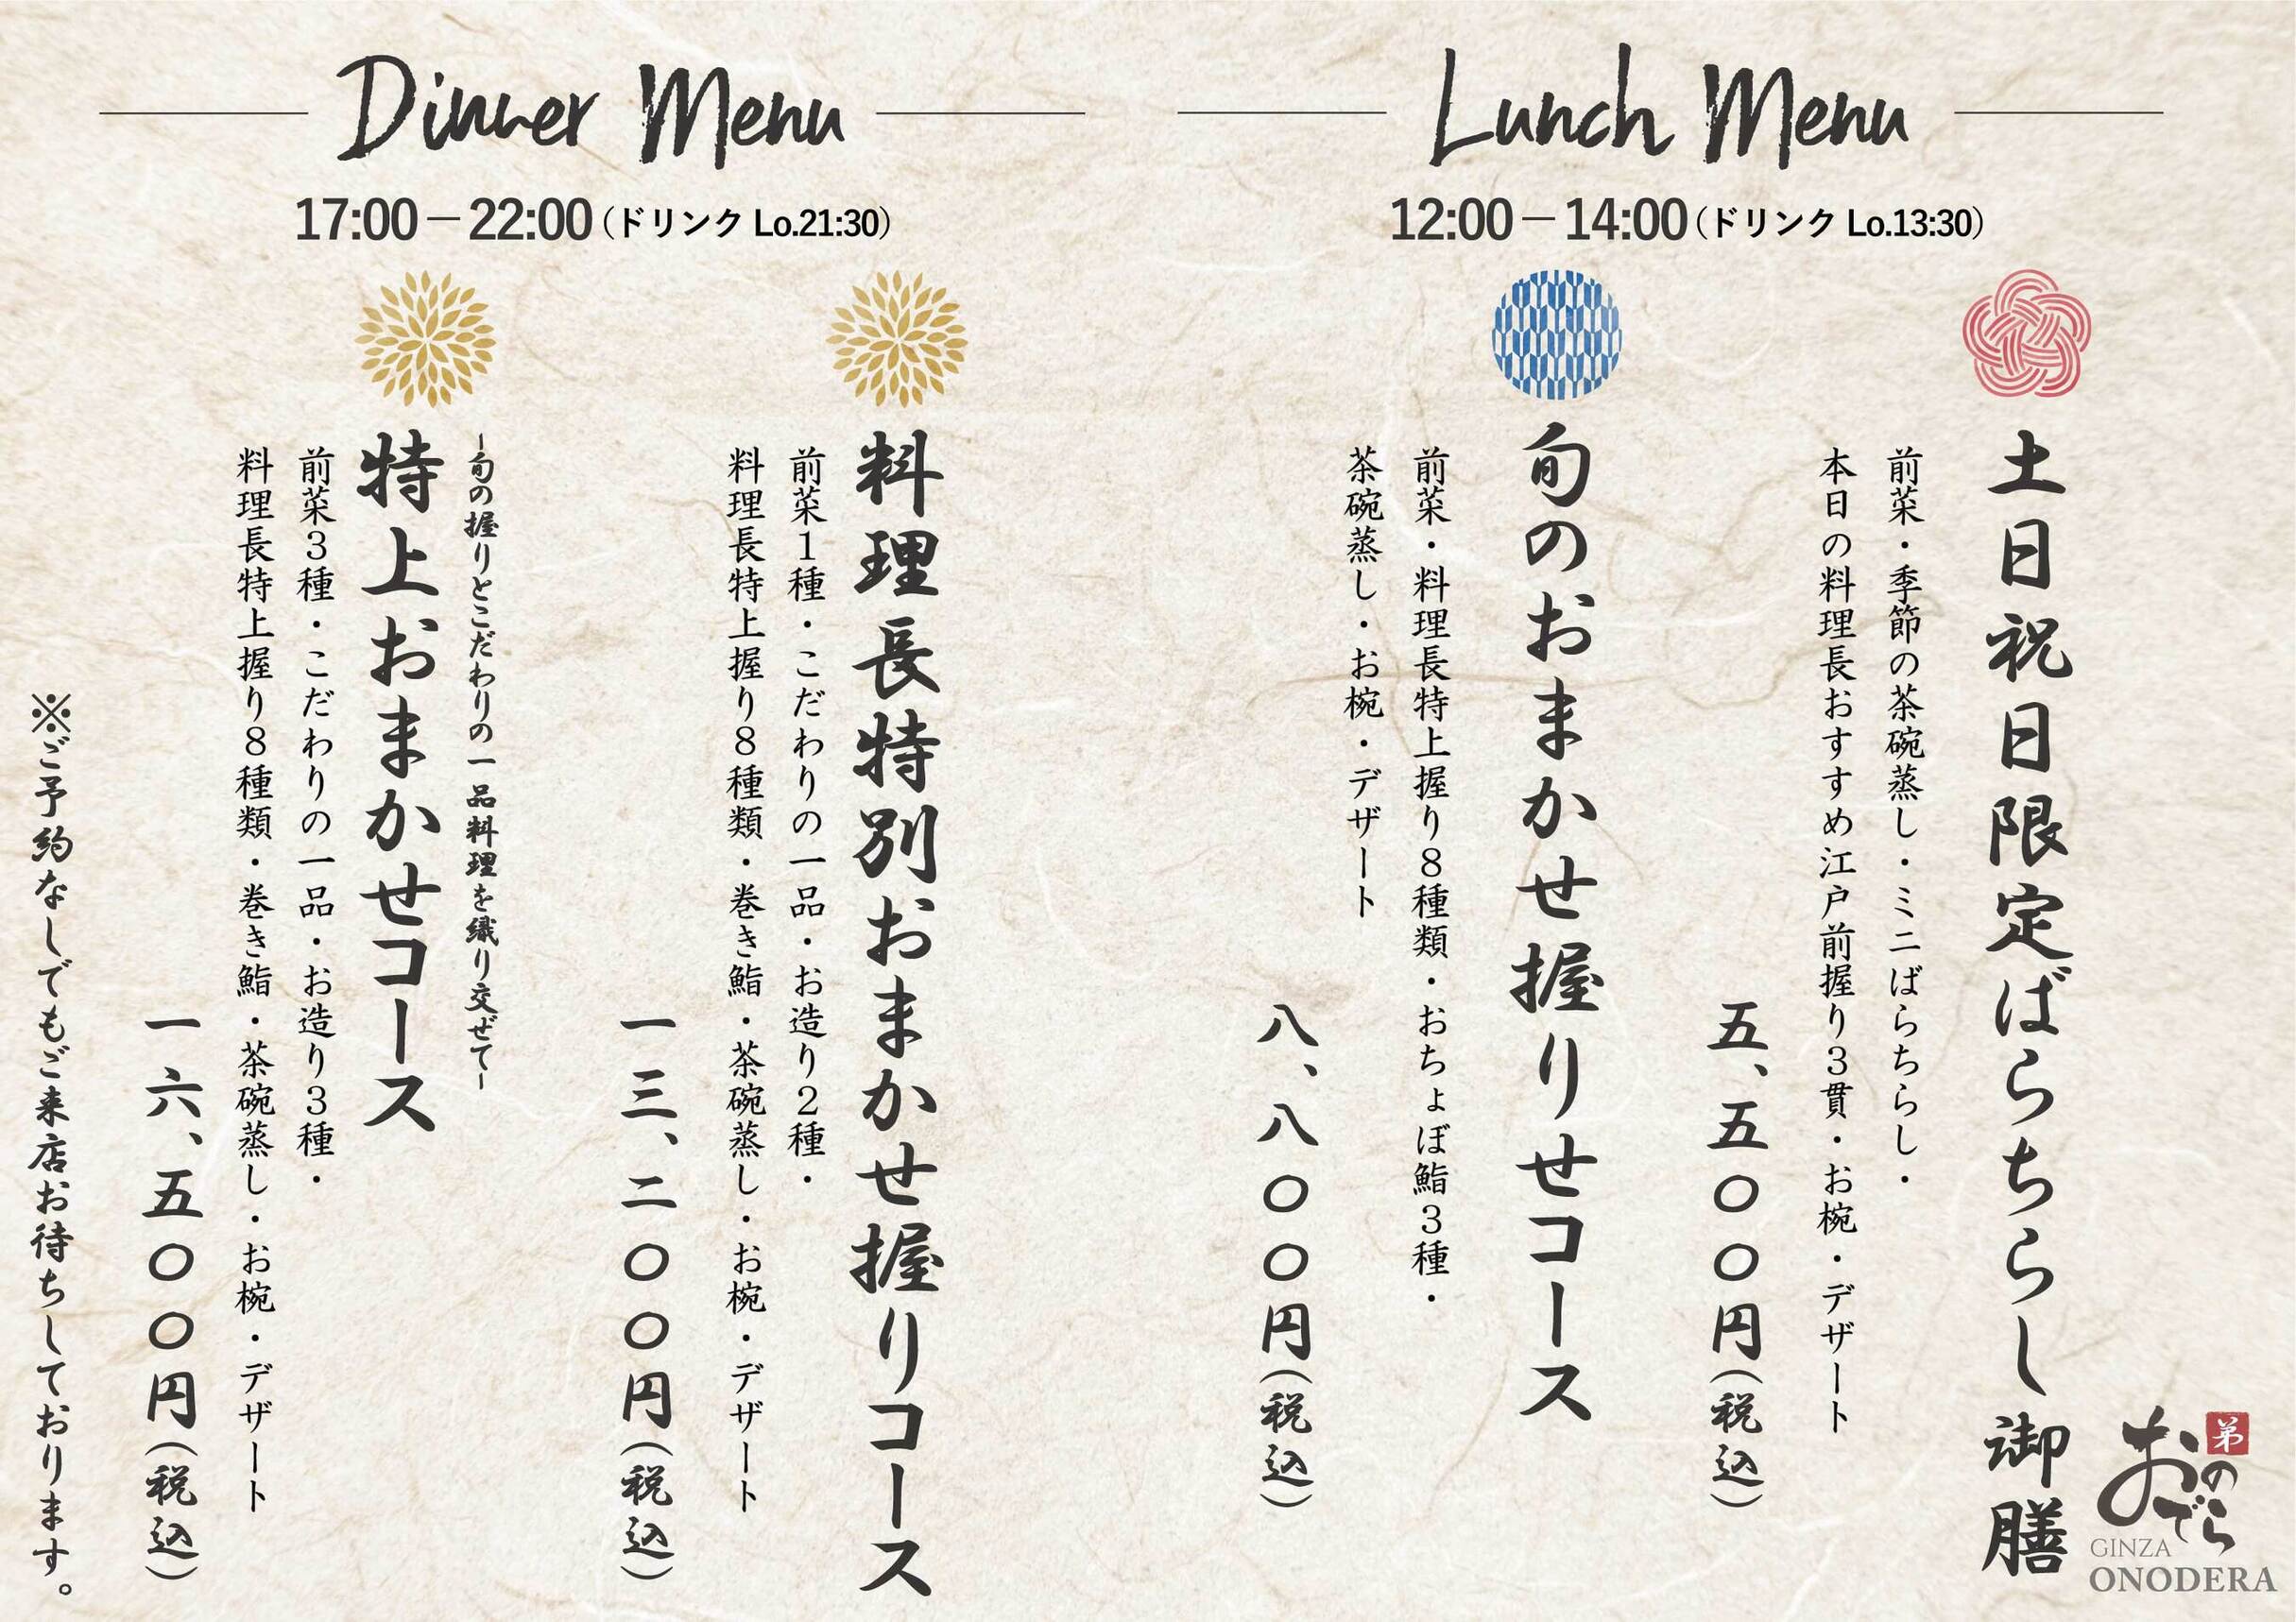 Lunch Menu
12:00－14:00（ドリンク Lo.13:30）
土日祝日限定ばらちらし御膳
前菜・季節の茶碗蒸し・ミニばらちらし・
本日の料理長おすすめ江戸前握り3貫・お椀・デザート
五、五〇〇円（税込）
旬のおまかせ握りせコース
前菜・料理長特上握り8種類・おちょぼ鮨3種・
茶碗蒸し・お椀・デザート
八、八〇〇円（税込）
Dinner Menu
17:00－22:00（ドリンク Lo.21:30）
料理長特別おまかせ握りコース
前菜1種・こだわりの一品・お造り2種・
料理長特上握り8種類・巻き鮨・茶碗蒸し・お椀・デザート
一三、二〇〇円（税込）
~旬の握りとこだわりの一品料理を織り交ぜて~
特上おまかせコース
前菜3種・こだわりの一品・お造り3種・
料理長特上握り8種類・巻き鮨・茶碗蒸し・お椀・デザート
一六、五〇〇円（税込）
※ご予約なしでもご来店お待ちしております。
弟
おのでら
GINZA
ONODERA